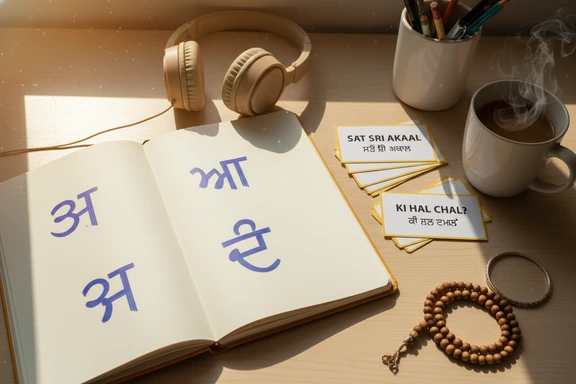 अ
ਅ
ਆ
SAT SRI AKAAL
ਅਕਾਲ
KI HAL CHAL?
ਕੀ